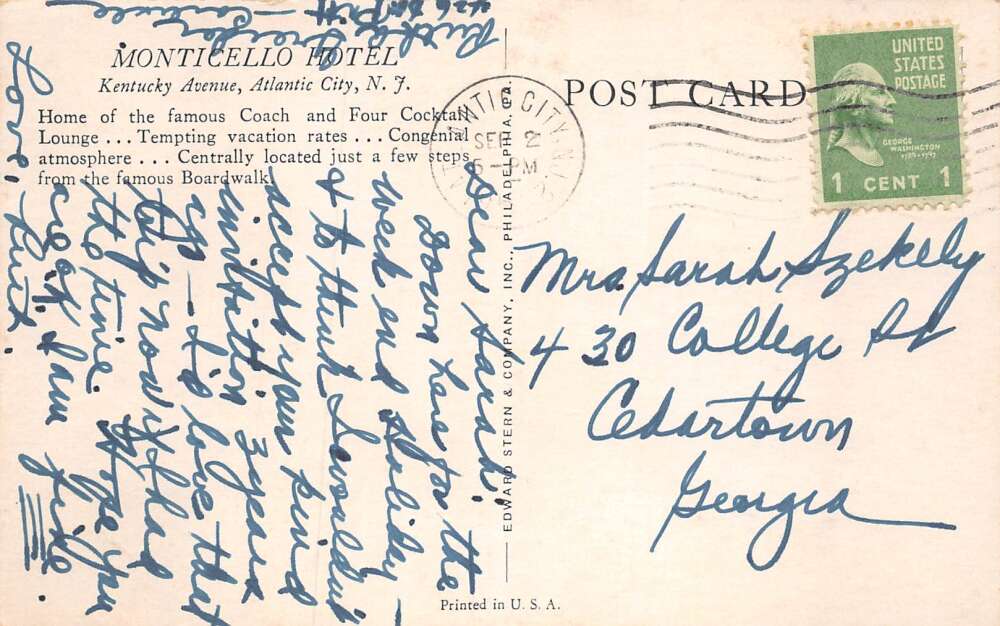 MONTICELLO HOTEL
Kentucky Avenue, Atlantic City, N. J.
Home of the famous Coach and Four Cocktail
Lounge ... Tempting vacation rates ... Congenial
atmosphere ... Centrally located just a few steps
from the famous Boardwalk
Dear Sarah:
Down here for the
week end Holiday –
& to think I wouldn't
accept your kind
invitation 3 years
ago – I'd love that
trip now if I had
the time. Hope you
are o.k. I am fine.
Love, Ruth.
EDWARD STERN & COMPANY, INC., PHILADELPHIA, PA.
Printed in U. S. A.
POST CARD
ATLANTIC CITY, N.J.
SEP 2
5 – PM
UNITED
STATES
POSTAGE
GEORGE
WASHINGTON
1789-1797
1 CENT 1
Mrs. Sarah Szekely
430 College St
Cedartown
Georgia